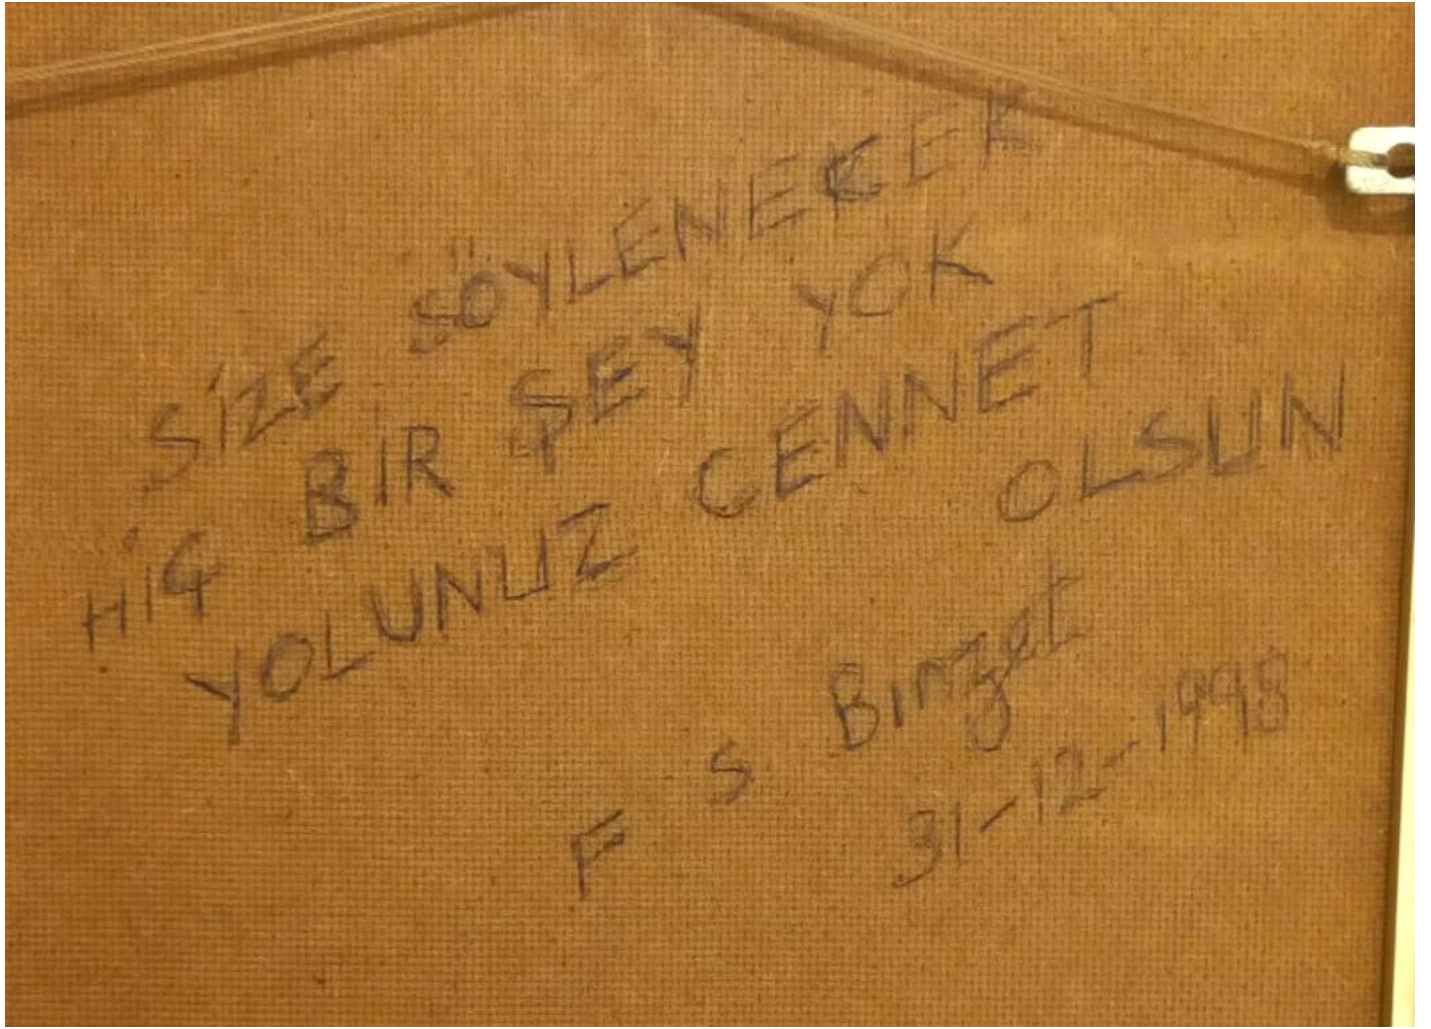 SİZE SÖYLENECEK
HİÇ BİR ŞEY YOK
YOLUNUZ CENNET
OLSUN
F S Binzet
31-12-1998